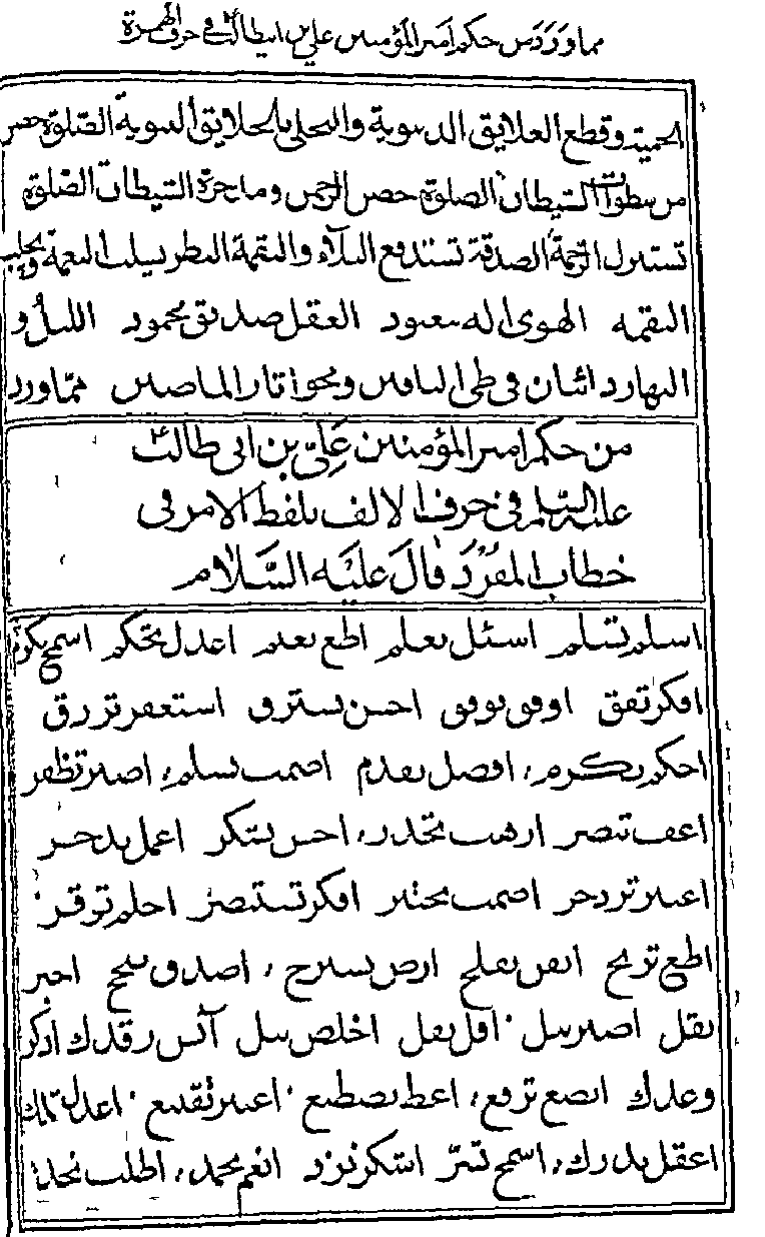 مما ورد من حكم امير المؤمنين علي بن ابيطالب في حرف الهمزة
الحميته وقطع العلايق الدنيوية والتحلي بالخلايق النبوية الصّلوة حصن
من سطوات الشيطان الصلوة حصن الرحمن ومدحرة الشيطان الصّلوة
تستنزل الرّحمة الصدقة تستدفع البلاء والنقمة البطر يسلب النعمة ويجلب
النقمه الهوى اله معبود العقل صديق محمود الليل و
النهار دائبان في طي الباقين ومحو اثار الماضين ممّا ورد
من حكم امير المؤمنين عليّ بن ابى طالب
عليه السّلم في حرف الالف بلفظ الامر في
خطاب المفرد قال عَليْه السَّلام
اسلم تسلم اسئل تعلم اطع تغنم اعدل تحكم اسمح تكرم
افكر تفق اوفق توفق احسن تسترق استغفر ترزق
احكم تكرم افضل تقدم اصمت تسلم اصبر تظفر
اعف تنصر ارهب تحذر احسن تشكر اعمل تدخر
اعتبر تزدجر اصمت افكر تستبصر احلم توقر
اطع تربح ايقن تفلح ارض تسترح اصدق تنجح اخبر
تقل اصبر تنل اخلص تنل آنس رفدك اذكر
وعدك اتضع ترفع اعط تصطنع اعتبر تقتنع اعدل تملك
اعقل تدرك اسمح تسد اشكر تزد انعم تحمد اطلب تجد